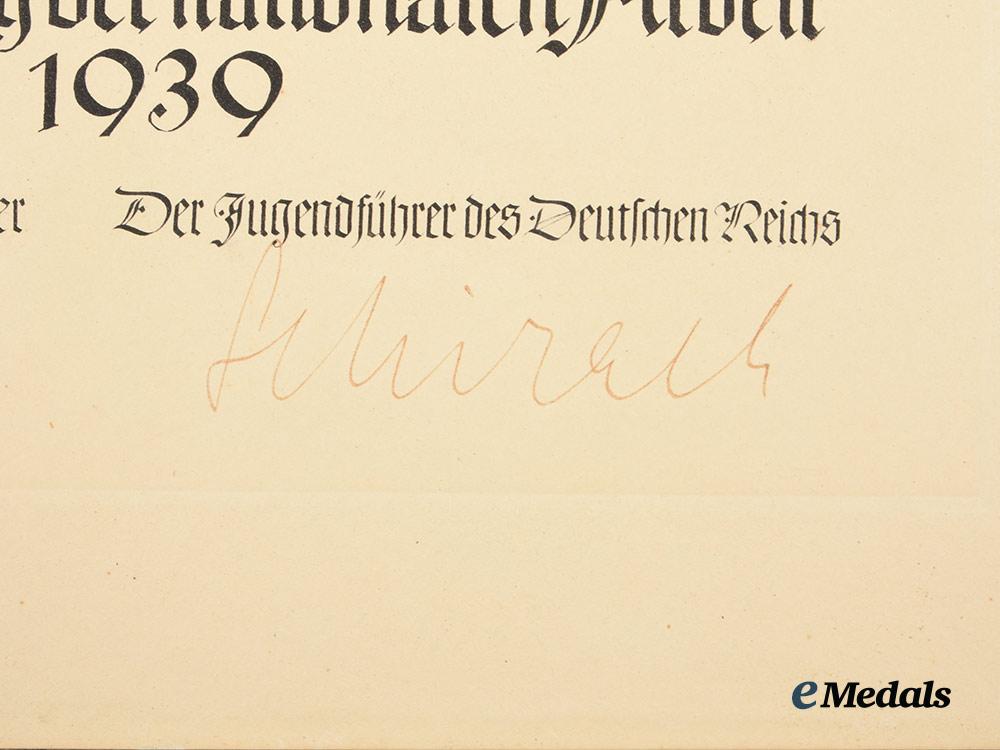 der nationalen Arbeit
1939
er
Der Jugendführer des Deutschen Reichs
Schirach
eMedals